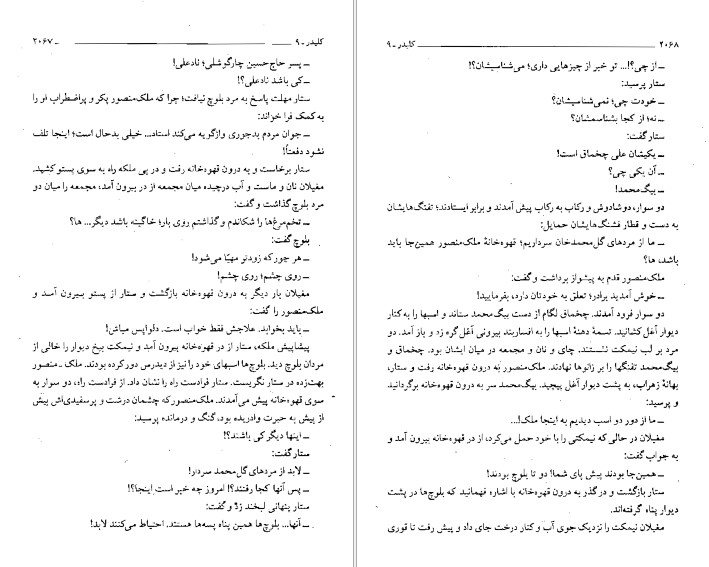 ۲۰۶۸ کلیدر ـ ۹
ـ از چی؟!... تو خبر از چیزهایی داری؛ می‌شناسیشان؟!
ستار پرسید:
ـ خودت چی؛ نمی‌شناسیشان؟
ـ نه؛ از کجا بشناسمشان؟
ستار گفت:
ـ یکیشان علی چخماق است!
ـ آن یکی چی؟
ـ بیگ‌محمد!
دو سوار، دوشادوش و رکاب به رکاب پیش آمدند و برابر ایستادند؛ تفنگهایشان
به دست و قطار فشنگهایشان حمایل:
ـ ما از مردهای گل‌محمدخان سرداریم؛ قهوه‌خانهٔ ملک‌منصور همین‌جا باید
باشد، ها؟
ملک‌منصور قدم به پیشواز برداشت و گفت:
ـ خوش آمدید برادر؛ تعلق به خودتان دارد، بفرمایید!
دو سوار فرود آمدند. چخماق لگام از دست بیگ‌محمد ستاند و اسبها را به کنار
دیوار آغل کشانید. تسمهٔ دهنهٔ اسبها را به افساربند بیرونی آغل گره زد و باز آمد. دو
مرد بر لب نیمکت نشستند. چای و نان و مجمعه در میان ایشان بود. چخماق و
بیگ‌محمد تفنگها را بر زانوها نهادند. ملک‌منصور به درون قهوه‌خانه رفت و ستار،
بهانهٔ زهراب، به پشت دیوار آغل پیچید. بیگ‌محمد سر به درون قهوه‌خانه برگردانید
و پرسید:
ـ ما از دور دو اسب دیدیم به اینجا ملک!...
مغیلان در حالی که نیمکتی را با خود حمل می‌کرد، از در قهوه‌خانه بیرون آمد و
به جواب گفت:
ـ همین‌جا بودند پیش پای شما! دو تا بلوچ بودند!
ستار بازگشت و در گذر به درون قهوه‌خانه با اشاره فهمانید که بلوچ‌ها در پشت
دیوار پناه گرفته‌اند.
مغیلان نیمکت را نزدیک جوی آب و کنار درخت جای داد و پیش رفت تا قوری
کلیدر ـ ۹ ۲۰۶۷
ـ پسر حاج‌حسین چارگوشلی؛ نادعلی!
ـ کی باشد نادعلی؟!
ستار مهلت پاسخ به مرد بلوچ نیافت؛ چرا که ملک‌منصور پکر و پراضطراب او را
به کمک فرا خواند:
ـ جوان مردم بدجوری واژگویه می‌کند استاد... خیلی بدحال است؛ اینجا تلف
نشود دفعتاً!
ستار برخاست و به درون قهوه‌خانه رفت و در پی ملکه راه به سوی پستو کشید.
مغیلان نان و ماست و آب درچیده میان مجمعه از در بیرون آمد، مجمعه را میان دو
مرد بلوچ گذاشت و گفت:
ـ تخم‌مرغ‌ها را شکاندم و گذاشتم روی بار؛ خاگینه باشد دیگر... ها؟
بلوچ گفت:
ـ هر جور که زودتر مهیّا می‌شود!
ـ روی چشم؛ روی چشم!
مغیلان بار دیگر به درون قهوه‌خانه بازگشت و ستار از پستو بیرون آمد و
ملک‌منصور را گفت:
ـ باید بخوابد. علاجش فقط خواب است. دلواپس مباش!
پیشاپیش ملکه، ستار از در قهوه‌خانه بیرون آمد و نیمکت بیخ دیوار را خالی از
مردان بلوچ دید. بلوچ‌ها اسبهای خود را نیز از دیدرس دور کرده بودند. ملک ـ منصور
بهت‌زده در ستار نگریست. ستار فرادست راه را نشان داد. از فرادست راه، دو سوار به
سوی قهوه‌خانه پیش می‌آمدند. ملک‌منصور که چشمان درشت و پرسفیدی‌اش بیش
از پیش به حیرت وادریده بود، گنگ و درمانده پرسید:
ـ اینها دیگر کی باشند؟!
ستار گفت:
ـ لابد از مردهای گل‌محمد سردار!
ـ پس آنها کجا رفتند؟! امروز چه خبر است اینجا؟!
ستار پنهانی لبخند زد و گفت:
ـ آنها... بلوچ‌ها همین پناه پسه‌ها هستند. احتیاط می‌کنند لابد!